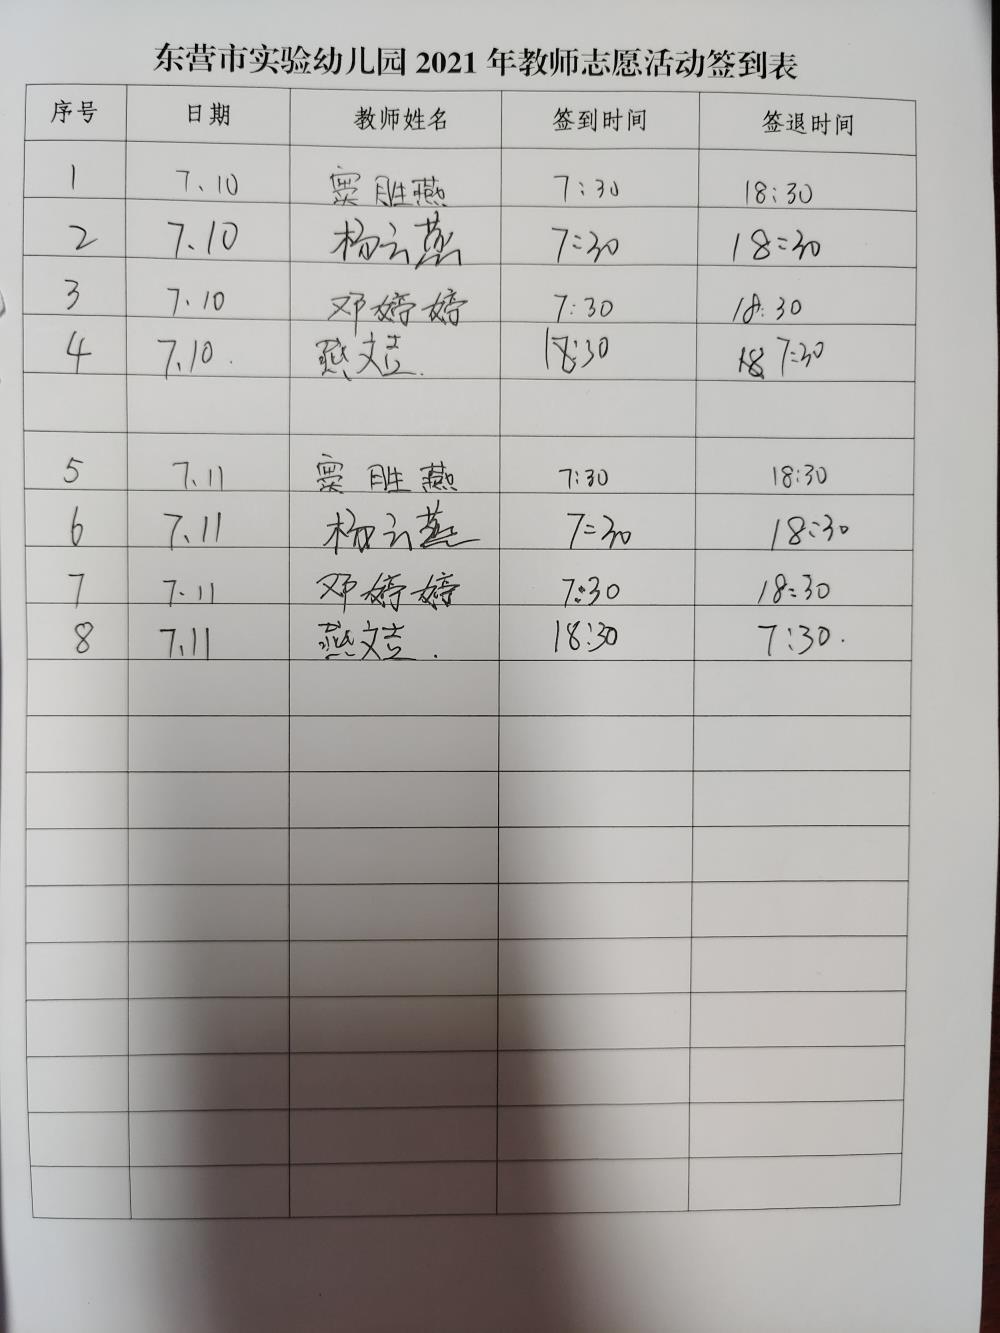 东营市实验幼儿园 2021 年教师志愿活动签到表
序号 日期 教师姓名 签到时间 签退时间
1 7、10 窦胜燕 7:30 18:30
2 7.10 杨云燕 7:30 18:30
3 7.10 邓婷婷 7:30 18:30
4 7.10. 燕文喆. 18:30 7:30
5 7.11 窦胜燕 7:30 18:30
6 7.11 杨云燕 7:30 18:30
7 7.11 邓婷婷 7:30 18:30
8 7.11 燕文 . 18:30 7:30.